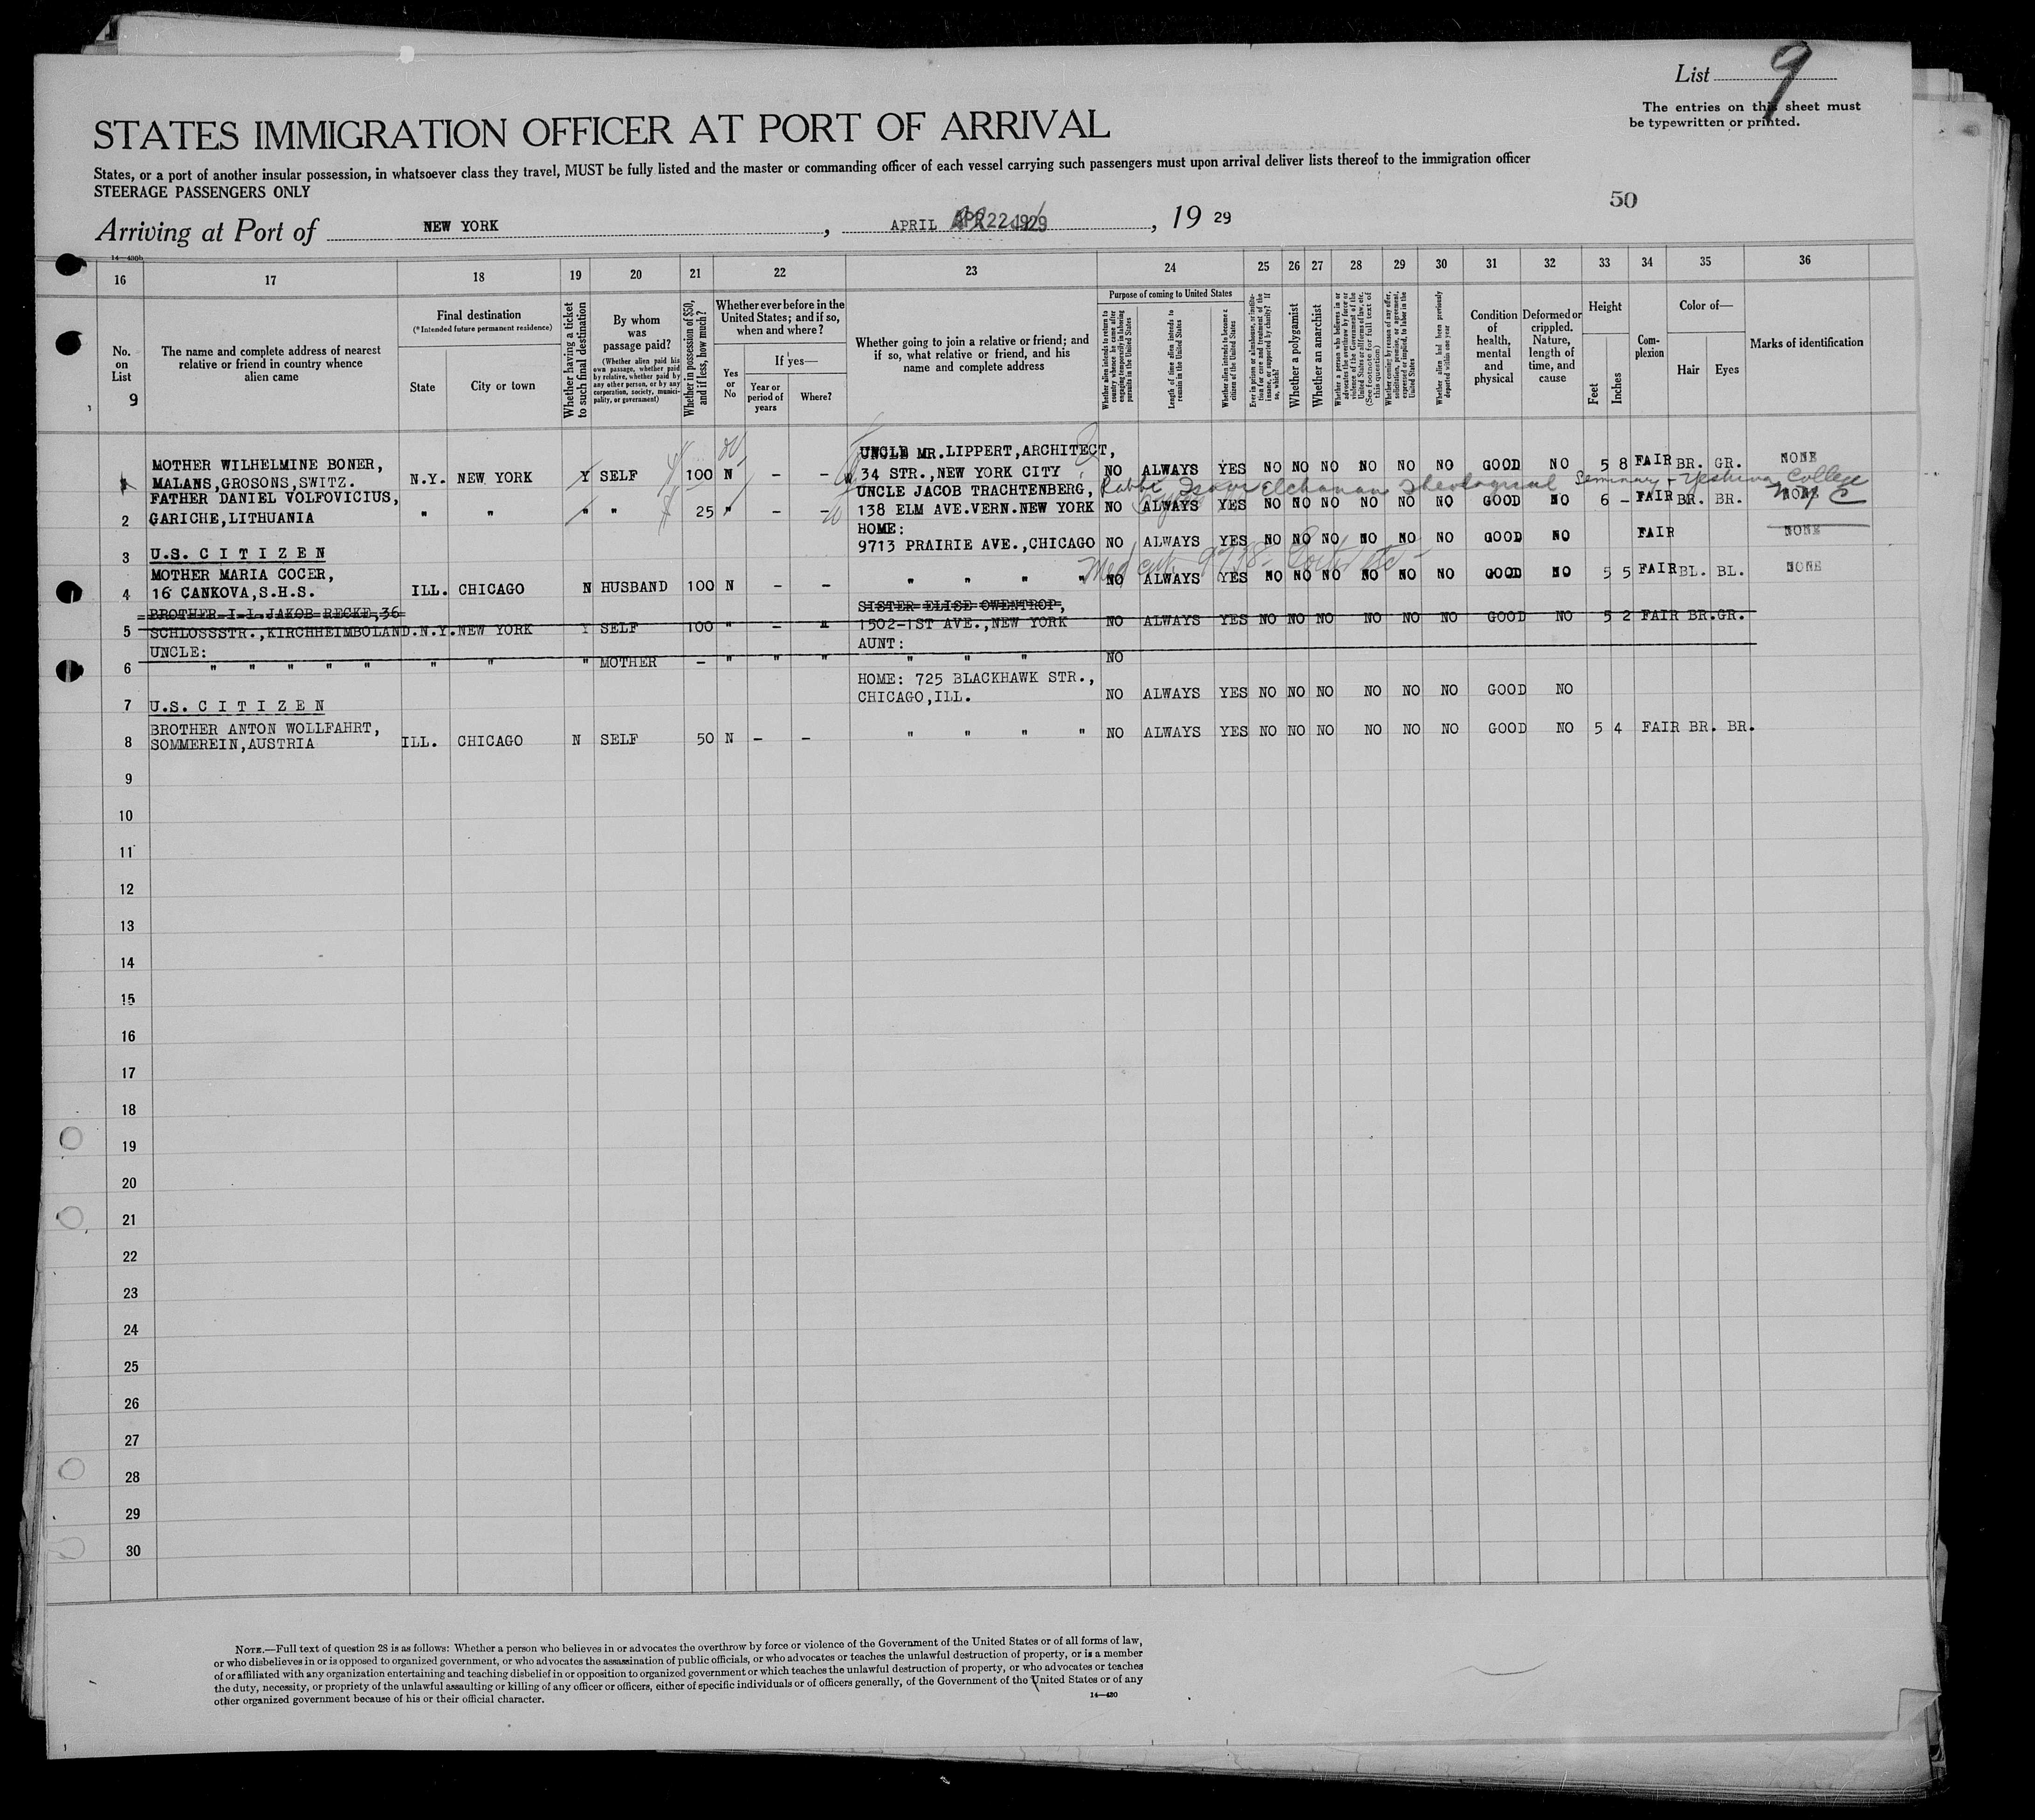 List 9
The entries on this sheet must
be typewritten or printed.
STATES IMMIGRATION OFFICER AT PORT OF ARRIVAL
States, or a port of another insular possession, in whatsoever class they travel, MUST be fully listed and the master or commanding officer of each vessel carrying such passengers must upon arrival deliver lists thereof to the immigration officer
STEERAGE PASSENGERS ONLY
50
Arriving at Port of NEW YORK, APRIL APR 22 1929, 19 29
14-430b
16 17 18 19 20 21 22 23 24 25 26 27 28 29 30 31 32 33 34 35 36
No. on List
9
The name and complete address of nearest relative or friend in country whence alien came
Final destination
(*Intended future permanent residence)
State
City or town
Whether having a ticket to such final destination
By whom was passage paid?
(Whether alien paid his own passage, whether paid by relative, whether paid by any other person, or by any corporation, society, municipality, or government)
Whether in possession of $50, and if less, how much?
Whether ever before in the United States; and if so, when and where?
Yes or No
If yes—
Year or period of years
Where?
Whether going to join a relative or friend; and if so, what relative or friend, and his name and complete address
Purpose of coming to United States
Whether alien intends to return to country whence he came after engaging temporarily in laboring pursuits in the United States
Length of time alien intends to remain in the United States
Whether alien intends to become a citizen of the United States
Ever in prison or almshouse, or institution for care and treatment of the insane, or supported by charity? If so, which?
Whether a polygamist
Whether an anarchist
Whether a person who believes in or advocates the overthrow by force or violence of the Government of the United States or all forms of law, etc. (See footnote for full text of this question)
Whether coming by reason of any offer, solicitation, promise, or agreement, expressed or implied, to labor in the United States
Whether alien had been previously deported within one year
Condition of health, mental and physical
Deformed or crippled. Nature, length of time, and cause
Height
Feet
Inches
Complexion
Color of—
Hair
Eyes
Marks of identification
MOTHER WILHELMINE BONER, UNCLE MR.LIPPERT,ARCHITECT,
1 MALANS,GROSONS,SWITZ. N.Y. NEW YORK Y SELF 100 N - - 34 STR.,NEW YORK CITY NO ALWAYS YES NO NO NO NO NO NO GOOD NO 5 8 FAIR BR. GR. NONE
Rabbi Isaac Elchanan Theological Seminary + Yeshiva College
N Y C
FATHER DANIEL VOLFOVICIUS, UNCLE JACOB TRACHTENBERG,
2 GARICHE,LITHUANIA " " " " 25 " - - 138 ELM AVE.VERN.NEW YORK NO ALWAYS YES NO NO NO NO NO NO GOOD NO 6 - FAIR BR. BR. NONE
HOME:
3 U.S. C I T I Z E N 9713 PRAIRIE AVE.,CHICAGO NO ALWAYS YES NO NO NO NO NO NO GOOD NO FAIR NONE
MOTHER MARIA COCER,
4 16 CANKOVA,S.H.S. ILL. CHICAGO N HUSBAND 100 N - - " " " " NO ALWAYS YES NO NO NO NO NO NO GOOD NO 5 5 FAIR BL. BL. NONE
BROTHER I.L.JAKOB RECKE,36 SISTER ELISE OWENTROP,
5 SCHLOSSSTR.,KIRCHHEIMBOLAND. N.Y. NEW YORK Y SELF 100 " - " 1502-1ST AVE.,NEW YORK NO ALWAYS YES NO NO NO NO NO NO GOOD NO 5 2 FAIR BR.GR.
UNCLE: AUNT:
6 " " " " " " " " MOTHER - " " " " " " NO
HOME: 725 BLACKHAWK STR.,
7 U.S. C I T I Z E N CHICAGO,ILL. NO ALWAYS YES NO NO NO NO NO NO GOOD NO
BROTHER ANTON WOLLFAHRT,
8 SOMMEREIN,AUSTRIA ILL. CHICAGO N SELF 50 N - - " " " " NO ALWAYS YES NO NO NO NO NO NO GOOD NO 5 4 FAIR BR. BR.
9
10
11
12
13
14
15
16
17
18
19
20
21
22
23
24
25
26
27
28
29
30
NOTE.—Full text of question 28 is as follows: Whether a person who believes in or advocates the overthrow by force or violence of the Government of the United States or of all forms of law,
or who disbelieves in or is opposed to organized government, or who advocates the assassination of public officials, or who advocates or teaches the unlawful destruction of property, or is a member
of or affiliated with any organization entertaining and teaching disbelief in or opposition to organized government or which teaches the unlawful destruction of property, or who advocates or teaches
the duty, necessity, or propriety of the unlawful assaulting or killing of any officer or officers, either of specific individuals or of officers generally, of the Government of the United States or of any
other organized government because of his or their official character.
14-430